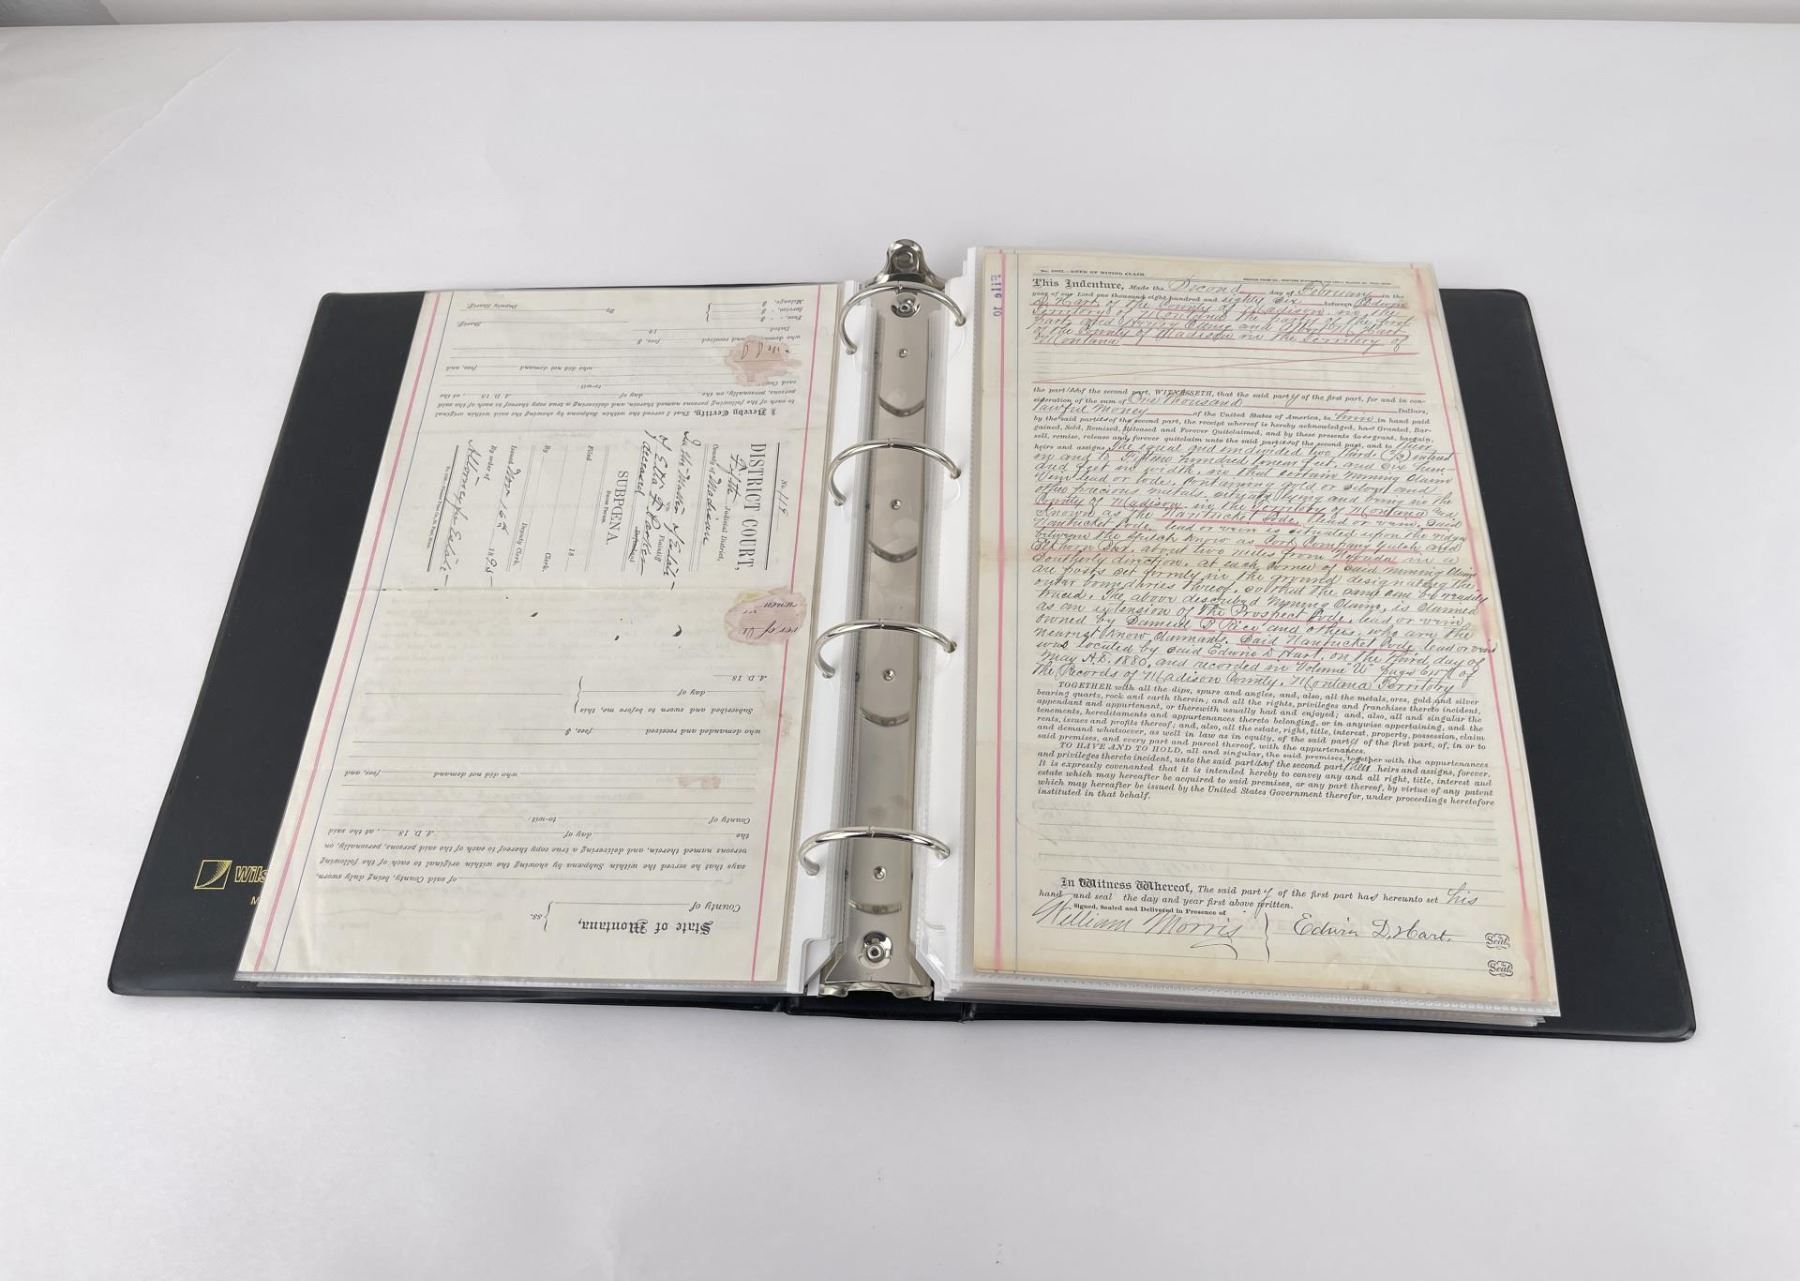 DISTRICT COURT,
Fifth Judicial District,
County of Madison
In the Matter of Estate
Plaintiff
of Etta
deceased Defendant
SUBPŒNA.
Filed
18
By Clerk.
Deputy Clerk.
Issued Nov 16th 1895
By order of
Attorney for Estate
I Hereby Certify, That I served the within Subpœna by showing the said within original
to each of the following persons named therein, and delivering a true copy thereof to each of the said
persons, personally, on the day of A. D. 18 , at the
said County to-wit:
who did not demand fees, and
who demanded and received $ fees,
Dated 18
Fees, - - $
Service, - $
Mileage, $
Sheriff
By Deputy Sheriff
State of Montana,
County of
ss.
of said County, being duly sworn,
says that he served the within Subpœna by showing the within original to each of the following
persons named therein, and delivering a true copy thereof to each of the said persons, personally, on
the day of A. D. 18 , at the said
County of to-wit:
who did not demand fees, and
who demanded and received $ fees,
Subscribed and sworn to before me, this
day of
A. D. 18
Wils
M
File 10
DEED OF MINING CLAIM
This Indenture, Made the Second day of February in the
year of our Lord one thousand eight hundred and eighty six between Edwin
D. Hart of the County of Madison in the
Territory of Montana the party of the first
part and Henry Elling and
of the County of Madison in the Territory of
Montana
the parties of the second part, WITNESSETH, that the said party of the first part, for and in con-
sideration of the sum of One Thousand Dollars,
lawful money of the United States of America, to him in hand paid
by the said parties of the second part, the receipt whereof is hereby acknowledged, has Granted, Bar-
gained, Sold, Remised, Released and Forever Quitclaimed, and by these presents does grant, bargain,
sell, remise, release and forever quitclaim unto the said parties of the second part, and to their
heirs and assigns The equal and undivided two thirds (2/3) interest
in and to Fifteen hundred linear feet, and Six hun-
dred feet in width, in that certain Mining Claim
Vein lead or lode, containing gold or silver and
other precious metals, situate lying and being in the
County of Madison, in the Territory of Montana and
Known as the Nantucket Lode, lead or vein. Said
Nantucket Lode, lead or vein is situated upon the ridge
between the Gulch know as Cork Company Gulch and
Elkhorn Bar. about two miles from Nevada in a
Southerly direction. at each corner of said Mining Claim
are posts set firmly in the ground designating the
outer boundaries thereof, so that the same can be readily
traced. The above described Mining Claim, is claimed
as an extension of The Prospect Lode, lead or vein
owned by Samuel P Rice and others, who are the
nearest know claimants. Said Nantucket Lode, lead or vein
was located by said Edwin D Hart, on the third day of
May A.D. 1880, and recorded in Volume "U" Page of
the Records of Madison County, Montana Territory
TOGETHER with all the dips, spurs and angles, and, also, all the metals, ores, gold and silver
bearing quartz, rock and earth therein; and all the rights, privileges and franchises thereto incident,
appendant and appurtenant, or therewith usually had and enjoyed; and, also, all and singular the
tenements, hereditaments and appurtenances thereto belonging, or in anywise appertaining, and the
rents, issues and profits thereof; and, also, all the estate, right, title, interest, property, possession, claim
and demand whatsoever, as well in law as in equity, of the said party of the first part, of, in or to
said premises, and every part and parcel thereof, with the appurtenances.
TO HAVE AND TO HOLD, all and singular, the said premises, together with the appurtenances
and privileges thereto incident, unto the said parties of the second part, their heirs and assigns, forever.
It is expressly covenanted that it is intended hereby to convey any and all right, title, interest and
estate which may hereafter be acquired to said premises, or any part thereof, by virtue of any patent
which may hereafter be issued by the United States Government therefor, under proceedings heretofore
instituted in that behalf.
In Witness Whereof, The said party of the first part has hereunto set his
hand and seal the day and year first above written.
Signed, Sealed and Delivered in Presence of
William Morris
Edwin D. Hart. Seal
Seal